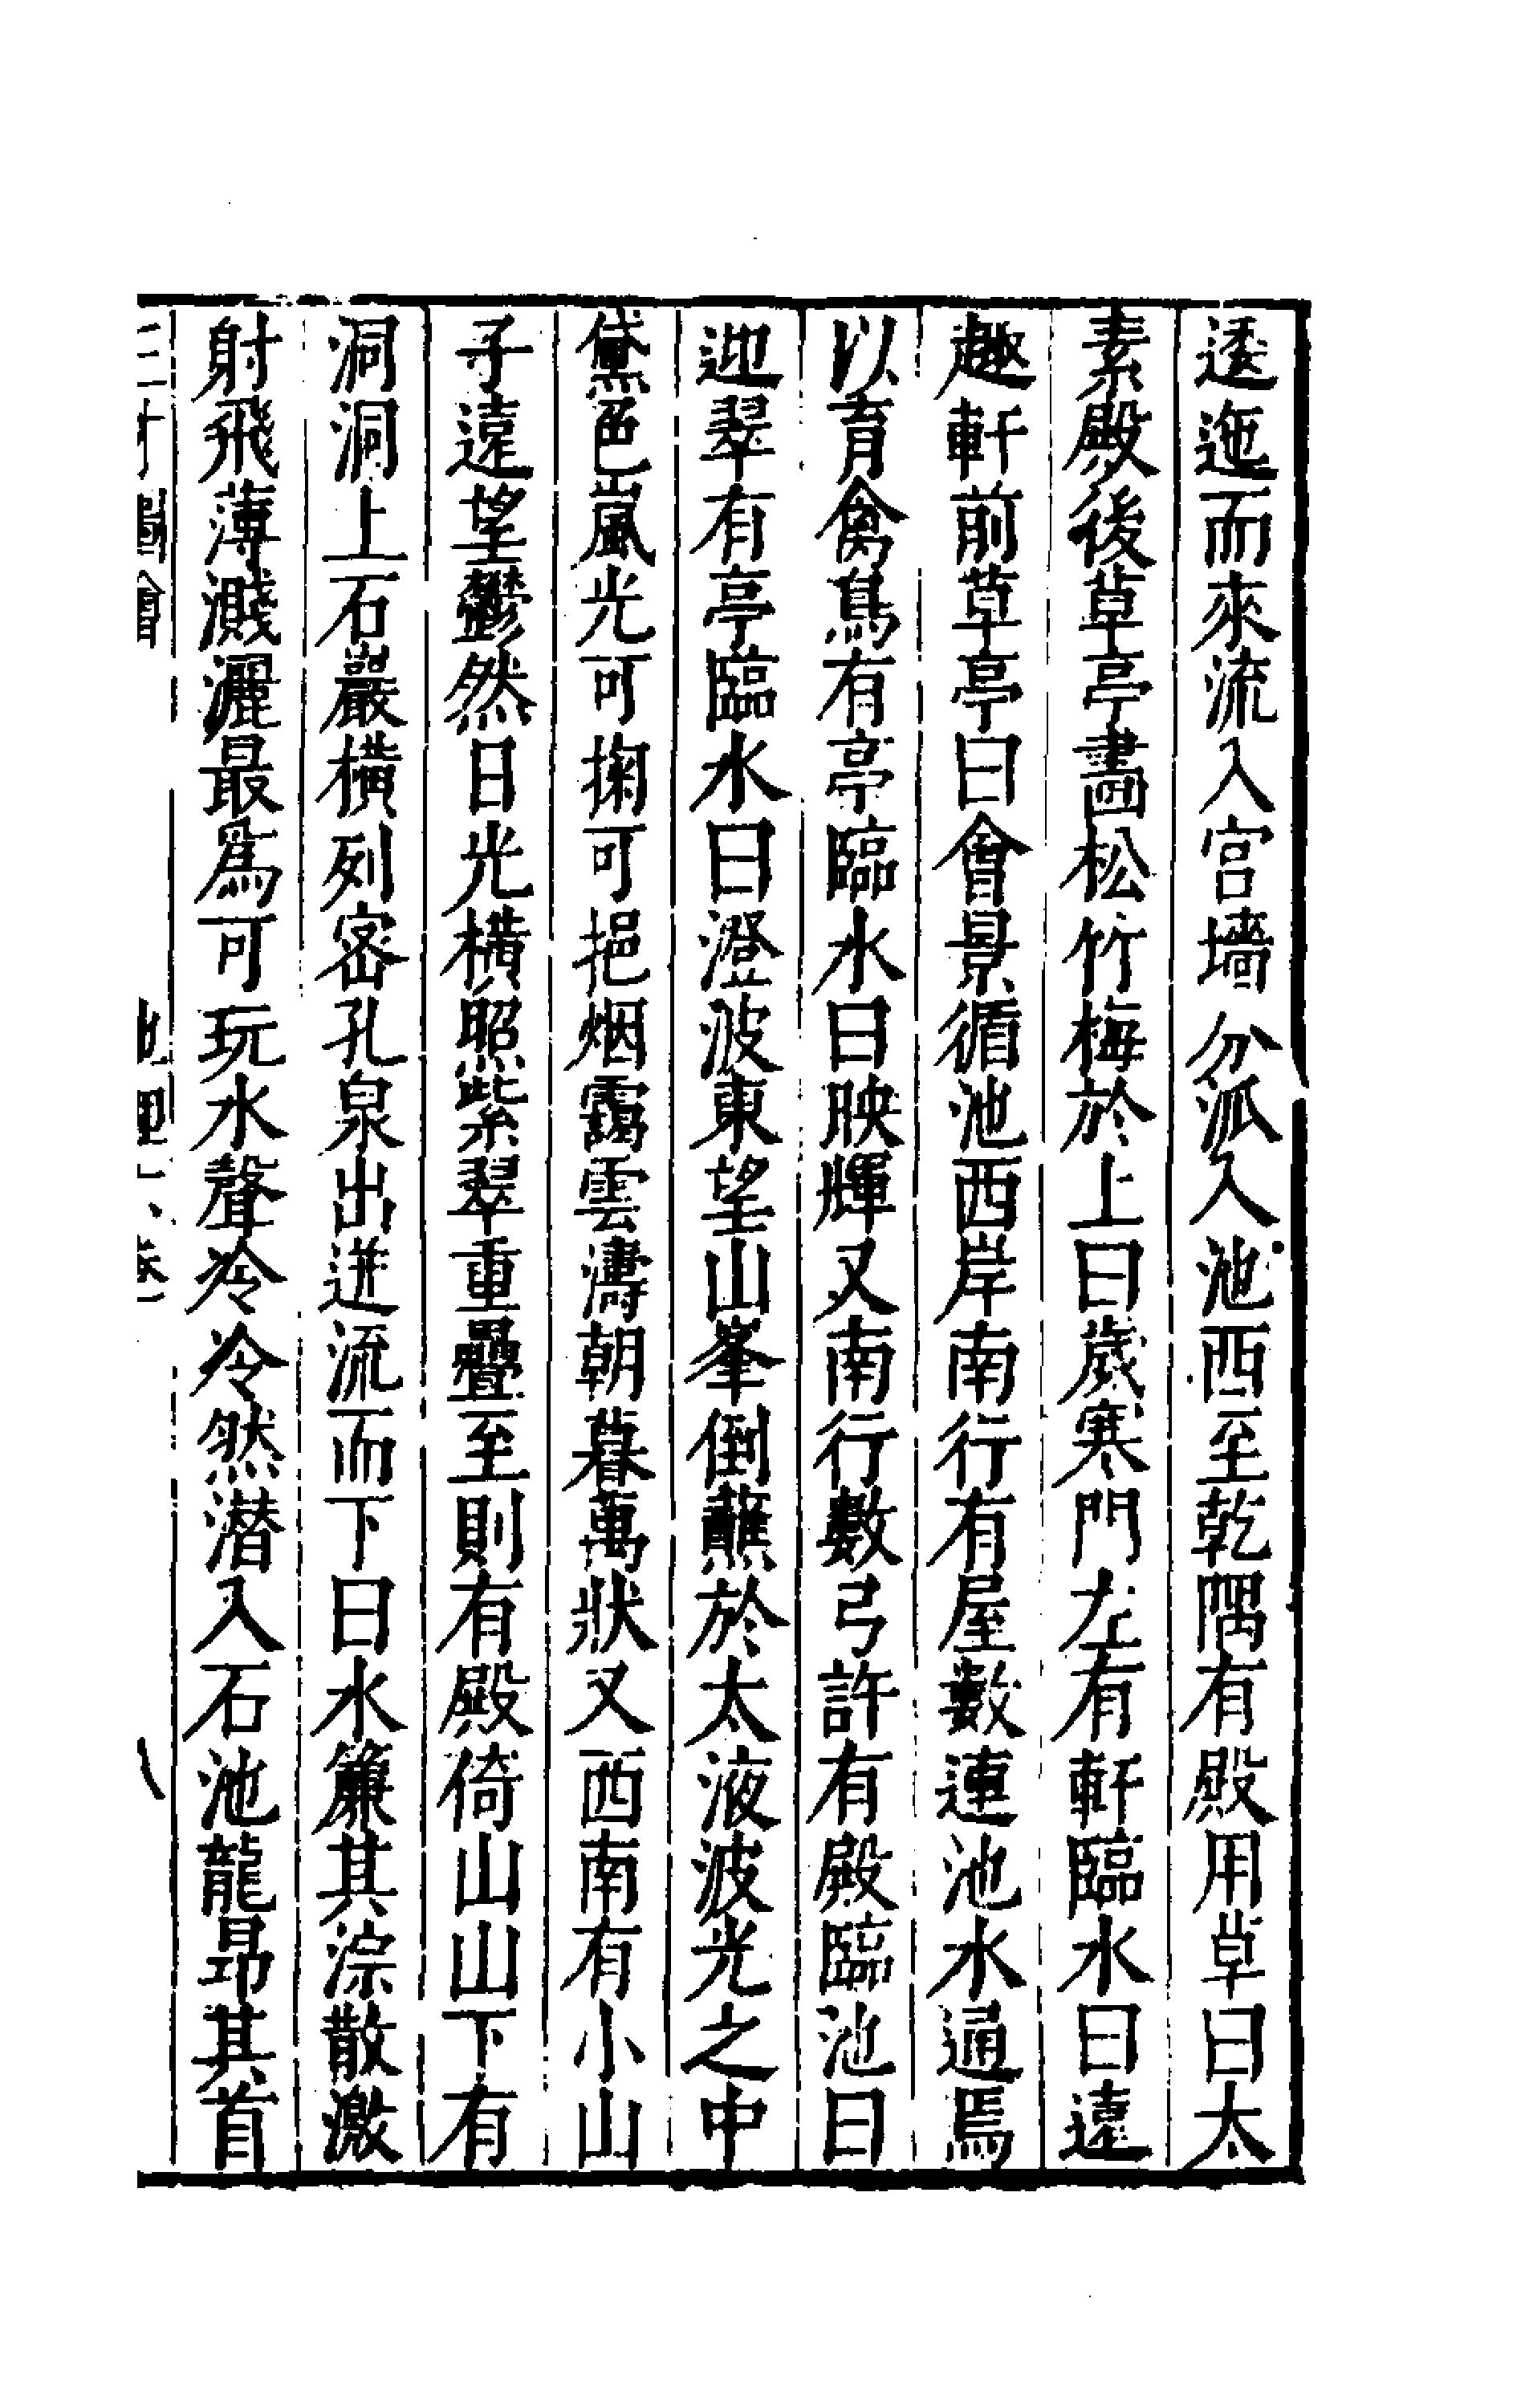 逶迤而來流入宫墻分派入池西至乾隅有殿用草曰太
素殿後草亭畵松竹梅於上曰歲寒門左有軒臨水曰遠
趣軒前草亭曰會景循池西岸南行有屋數連池水通焉
以育禽鳥有亭臨水曰映輝又南行數弓許有殿臨池曰
迎翠有亭臨水曰澄波東望山峯倒蘸於太液波光之中
黛色嵐光可掬可挹烟靄雲濤朝暮萬狀又西南有小山
子遠望鬱然日光橫照紫翠重疊至則有殿倚山山下有
洞洞上石巖橫列密孔泉出迸流而下曰水簾其淙散激
射飛薄濺灑最爲可玩水聲泠泠然潜入石池龍昂其首
三才圖會 地理一六卷 八